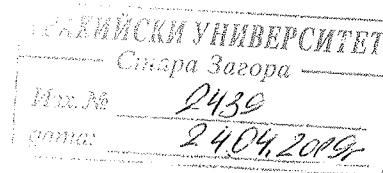 ТРАКИЙСКИ УНИВЕРСИТЕТ
Стара Загора
Изх. № 2439
дата: 24.04.2019г